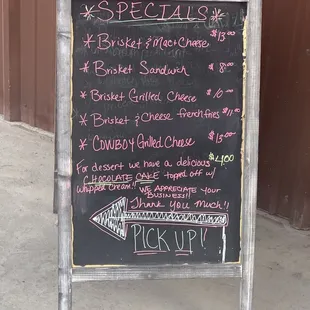 *SPECIALS*
* Brisket & Mac+Cheese $13.00
* Brisket Sandwich $8.00
* Brisket Grilled Cheese $10.00
* Brisket & Cheese french fries $11.00
* COWBOY Grilled Cheese $13.00
For dessert we have a delicious $4.00
CHOCOLATE CAKE topped off w/
whipped cream!!
WE APPRECIATE your
BUSINESS!!
Thank You Much!!
PICK UP!!